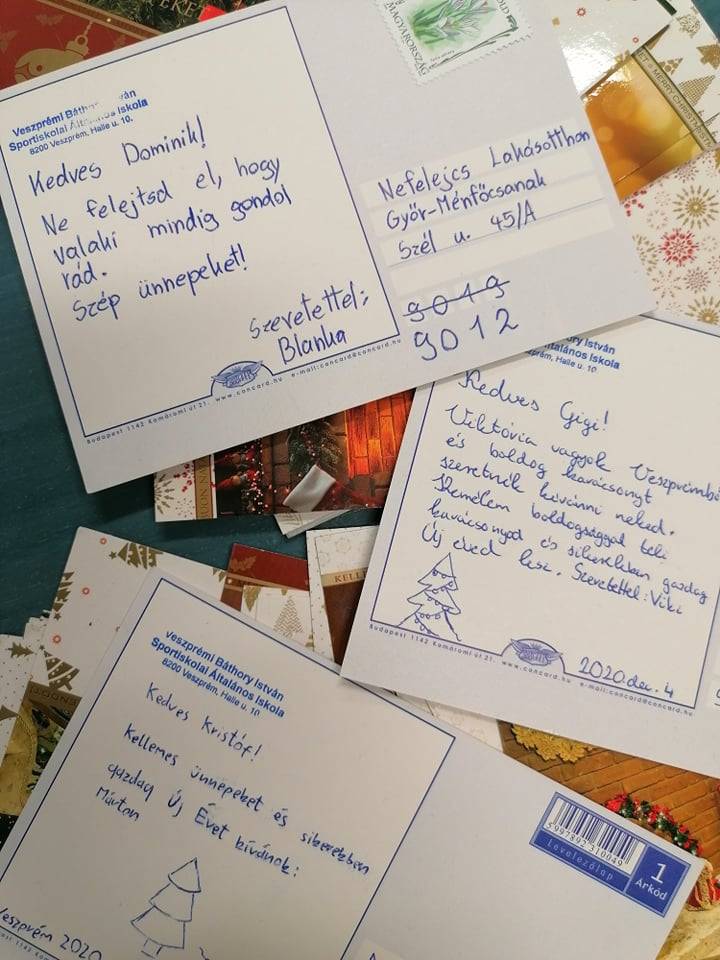 Veszprémi Báthory István
Sportiskolai Általános Iskola
8200 Veszprém, Halle u. 10.
Kedves Dominik!
Ne felejtsd el, hogy
valaki mindig gondol
rád.
Szép ünnepeket!
Szeretettel:
Blanka
Budapest 1142 Komáromi út 21. www.concard.hu e-mail:concard@concard.hu
MAGYARORSZÁG
Nefelejcs Lakásotthon
Győr-Ménfőcsanak
Szél u. 45/A
9019
9012
Báthory István
Általános Iskola
Veszprém, Halle u. 10.
Kedves Gigi!
Viktória vagyok Veszprémbő
és boldog karácsonyt
szeretnék kívánni neked.
Remélem boldogsággal teli
karácsonyod és sikerekben gazdag
Új éved lesz. Szeretettel: Viki
2020.dec.4
Budapest 1142 Komáromi út 21. www.concard.hu e-mail:concard@concard.hu
MERRY CHRISTMAS
KELL
Veszprémi Báthory István
Sportiskolai Általános Iskola
8200 Veszprém, Halle u. 10.
Kedves Kristóf!
Kellemes ünnepeket és sikerekben
gazdag Új Évet kívánok:
Márton
Veszprém 2020
5997892 310049
Levelezőlap
1
Árkód